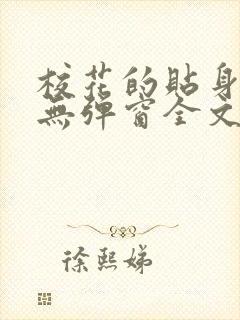 校花的貼身
無彈窗全文
徐熙娣